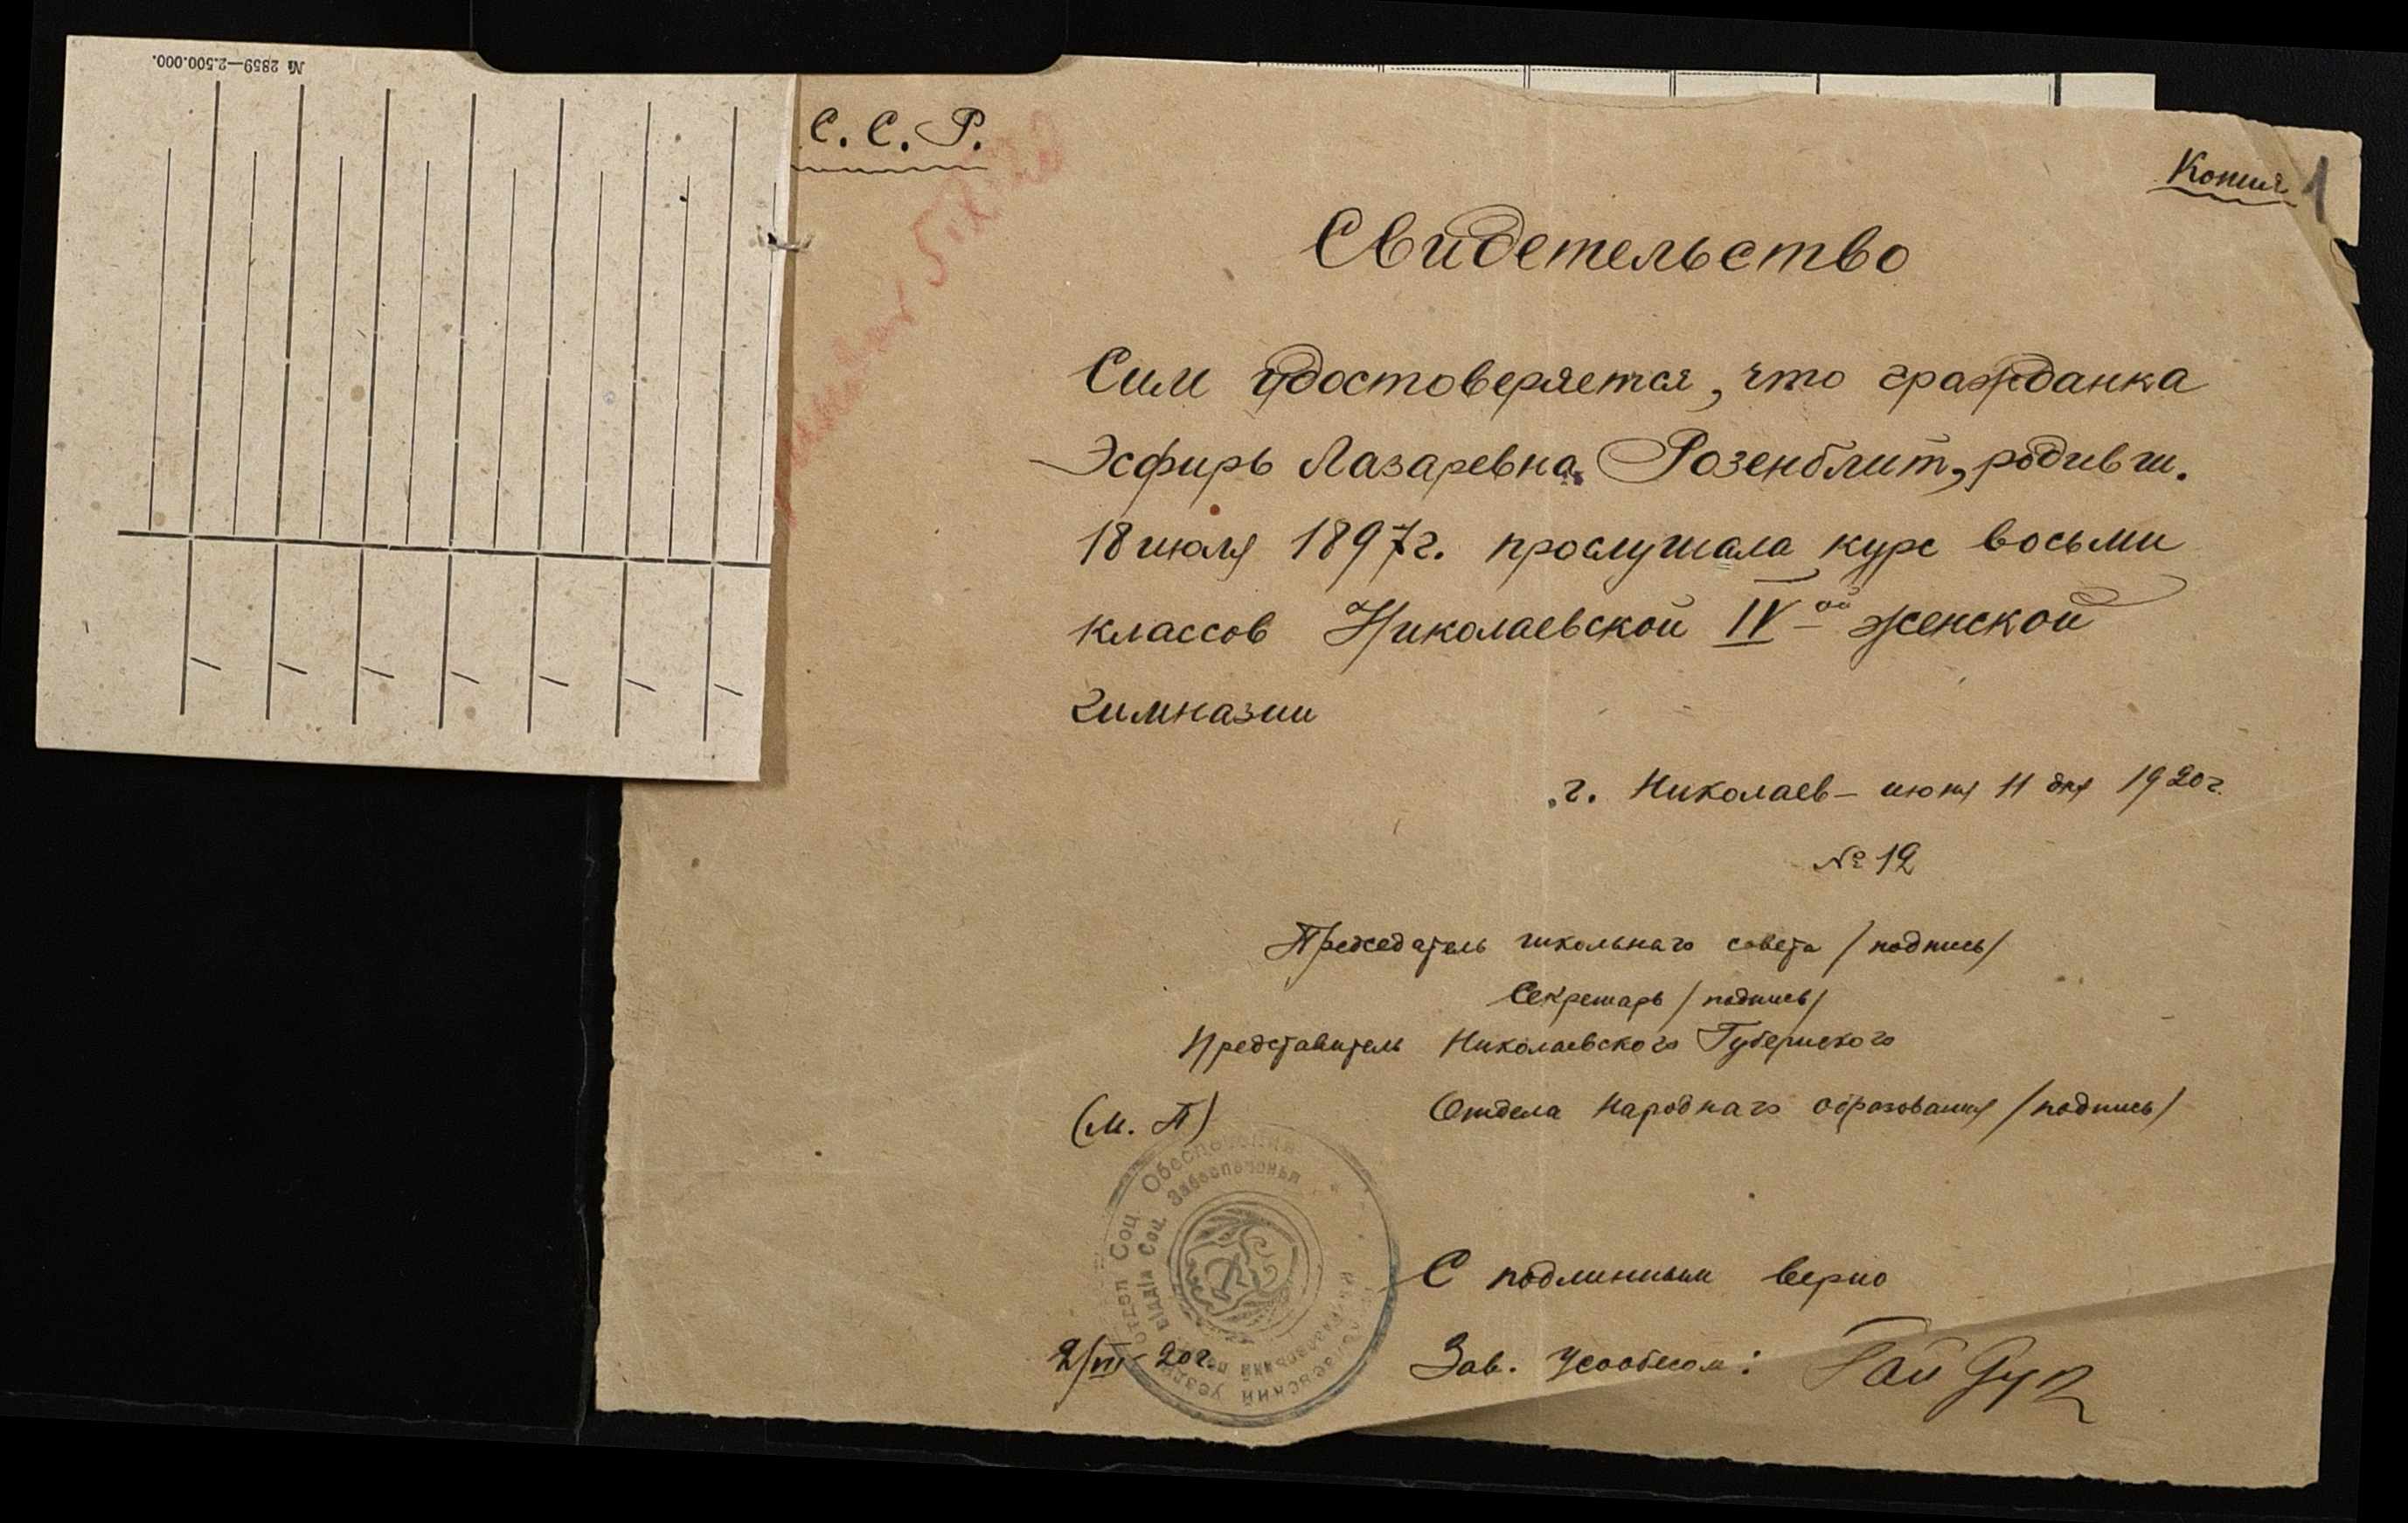 № 2859—2.500.000.
С. С. Р.
Копия 1
Свидетельство
Сим удостоверяется, что гражданка
Эсфирь Лазаревна Розенблит, родивш.
18 июля 1897г. прослушала курс восьми
классов Николаевской IV-ой женской
гимназии
г. Николаев – июня 11 дня 1920г.
№ 12
Председатель школьнаго совета /подпись/
Секретарь /подпись/
Представитель Николаевского Губернского
(М. П) Отдела Народнаго образования /подпись/
Отдел Соц. Обеспечения
Соц. Забеспечення
С подлинным верно
20г. Зав. Усобесом: Гайдук